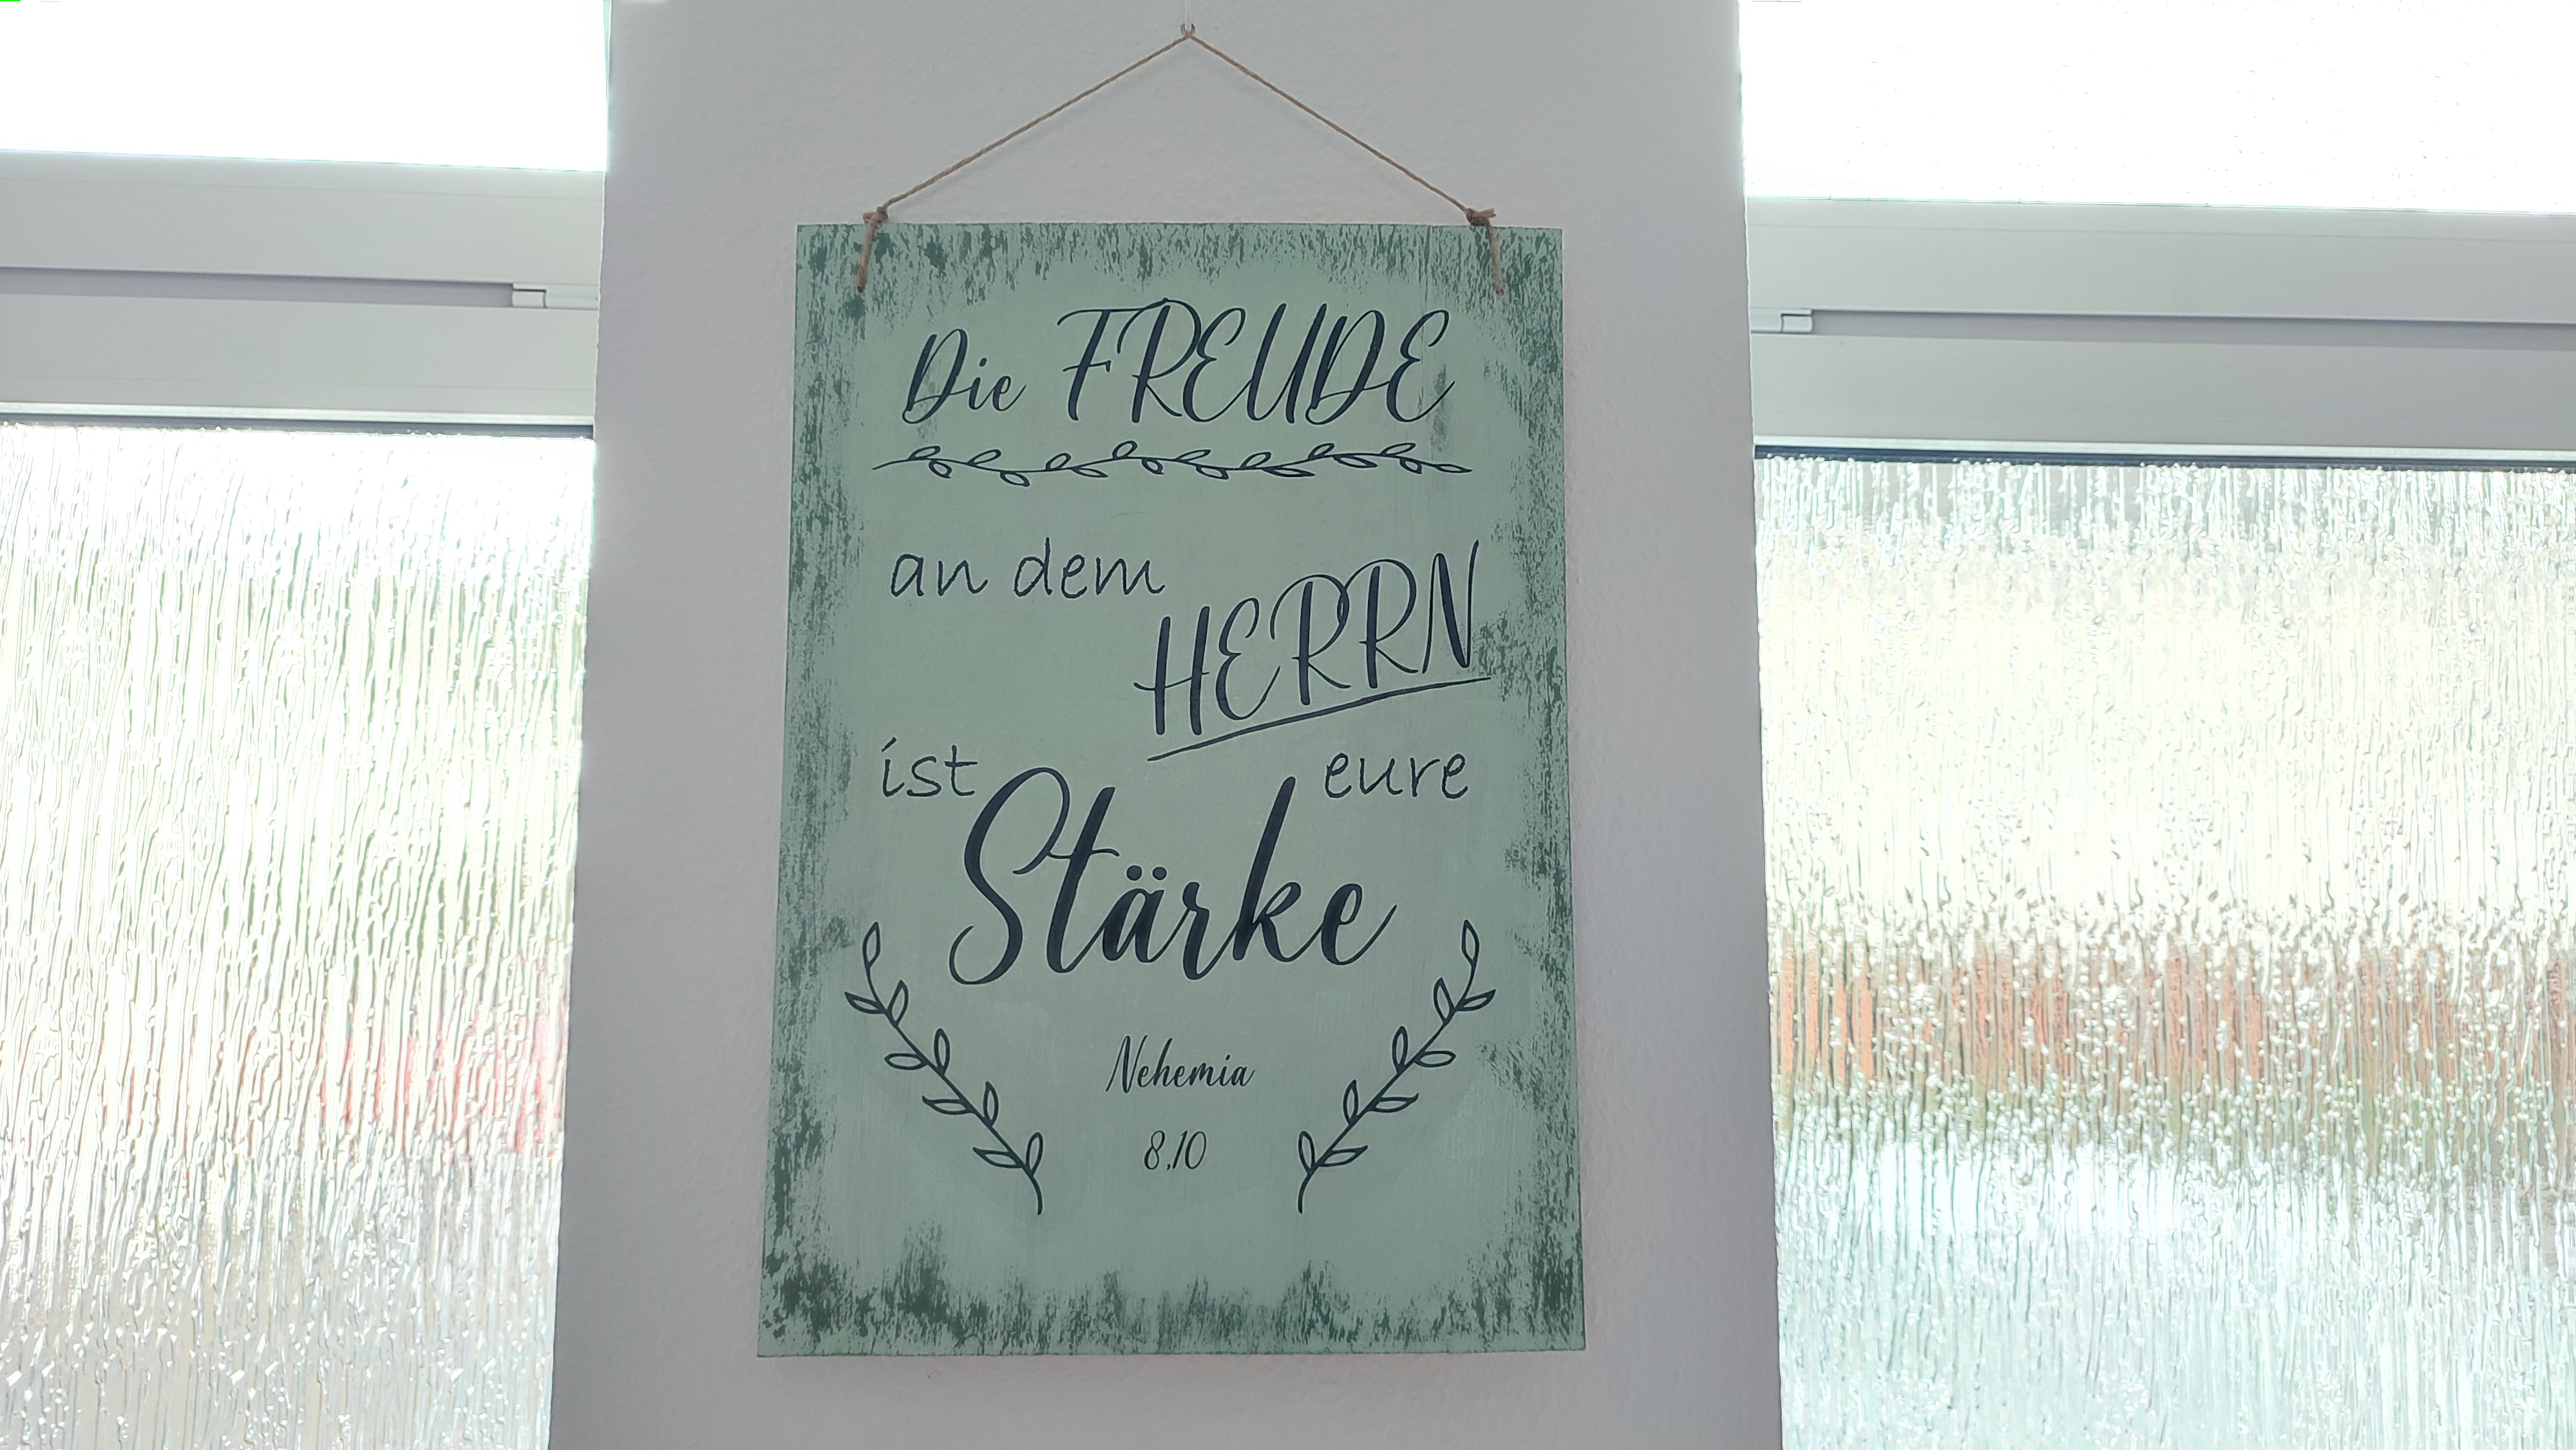 Die FREUDE
an dem
HERRN
ist eure
Stärke
Nehemia
8,10